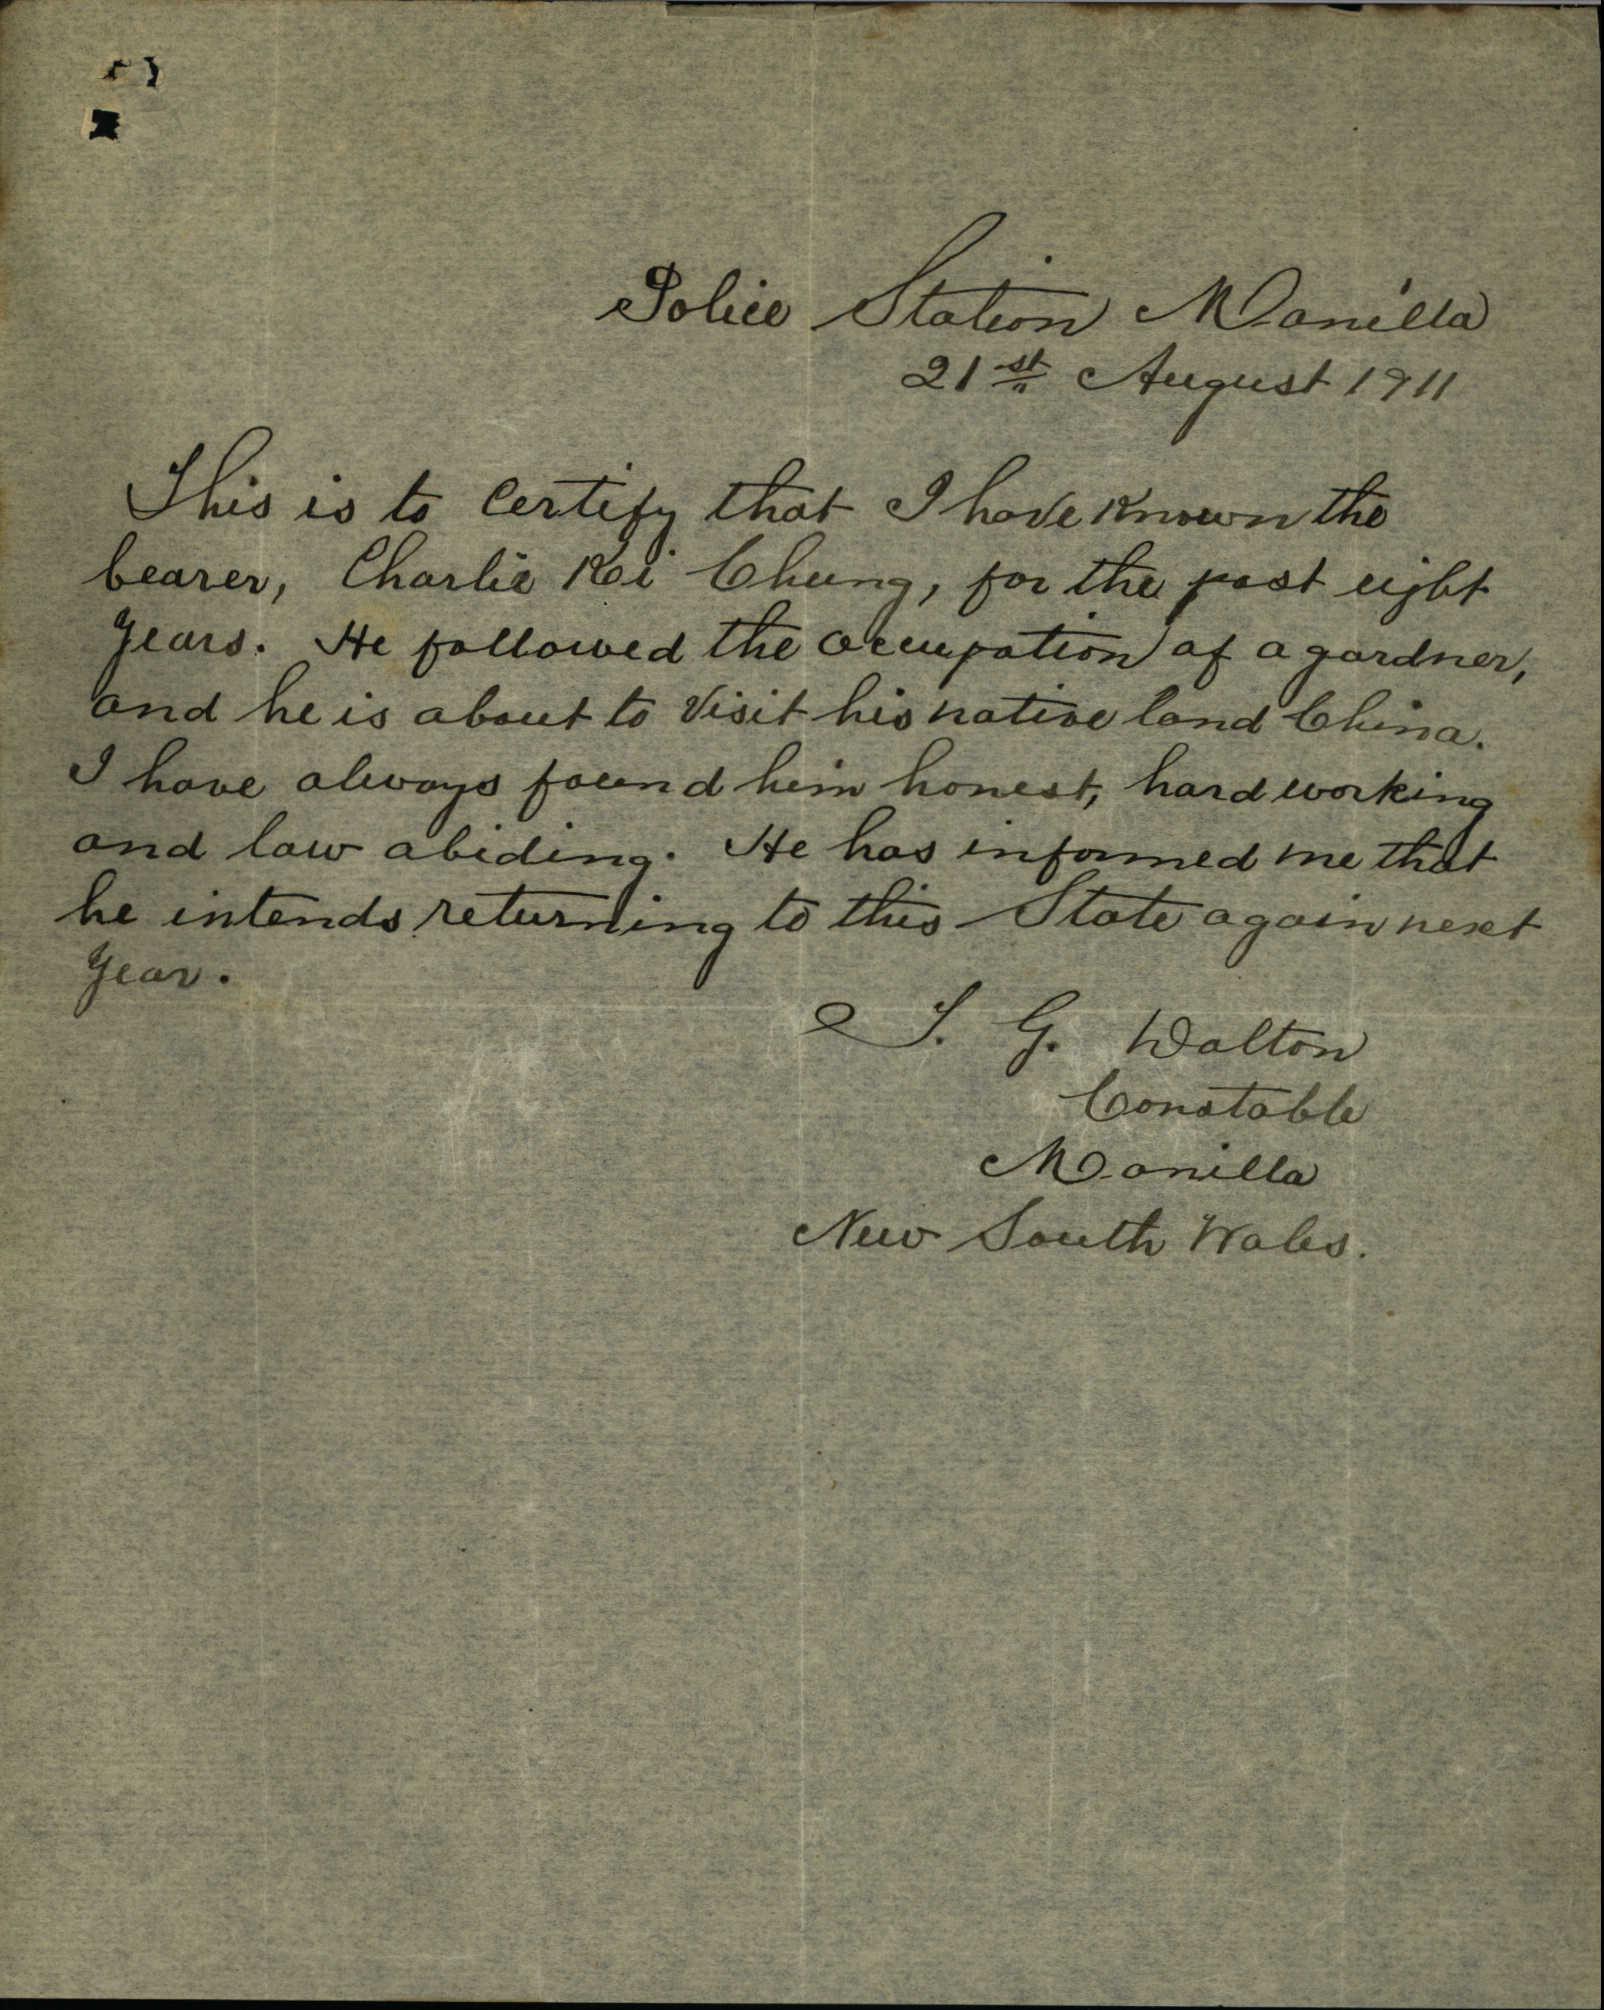 Police Station Manilla
21st August 1911
This is to Certify that I have Known the
bearer, Charlie Kei Chung, for the past eight
years. He followed the occupation of a gardner,
and he is about to visit his native land China.
I have always found him honest, hard working
and law abiding. He has informed me that
he intends returning to this State again next
year.
T. G. Walton
Constable
Manilla
New South Wales.